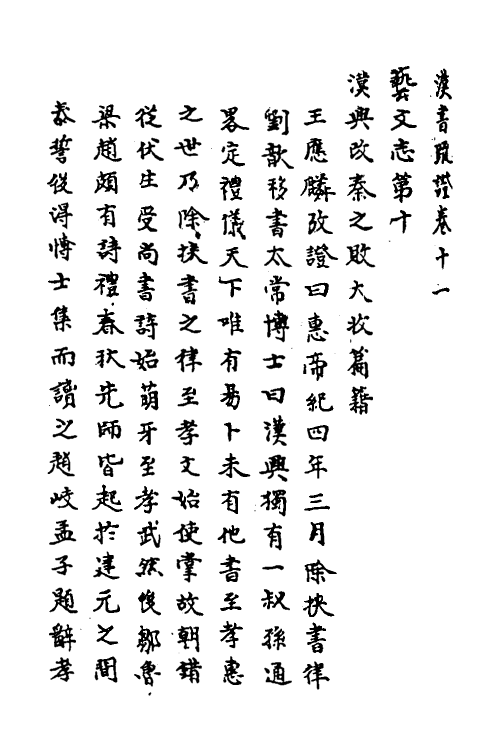 漢書疏證卷十一
藝文志第十
漢興改秦之敗大收篇籍
王應麟攷證曰惠帝紀四年三月除挾書律
劉歆移書太常博士曰漢興獨有一叔孫通
畧定禮儀天下唯有易卜未有他書至孝惠
之世乃除挾書之律至孝文始使掌故朝錯
從伏生受尚書詩始萌牙至孝武然後鄒魯
梁趙頗有詩禮春秋先師皆起於建元之間
泰誓後得博士集而讀之趙岐孟子題辭孝